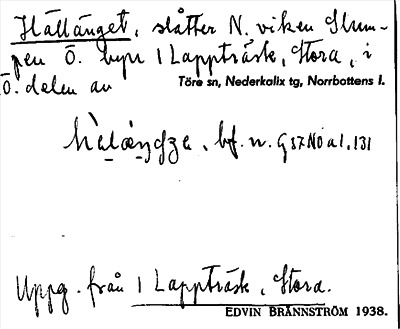 Hällänget, slåtter N. viken Slum-
pen Ö. byn 1 Lappträsk, Stora, i
Ö. delen av
Töre sn, Nederkalix tg, Norrbottens l.
bf. n. G 37 NO a 1. 131
Uppg. från 1 Lappträsk, Stora.
EDVIN BRÄNNSTRÖM 1938.